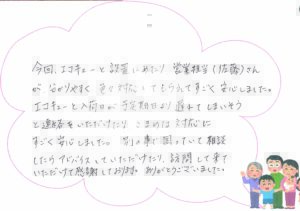 今回、エコキュート設置にあたり 営業担当(佐藤)さん
が 分かりやすく 色々対応してもらえてすごく安心しました。
エコキュート入荷日が予定期日より遅れてしまいそう
と連絡をいただけたり こまめな対応に
すごく安心しました。別の事で困っていて相談
したらアドバイスしていただけたり、訪問して来て
いただけて感謝しております。ありがとうございました。